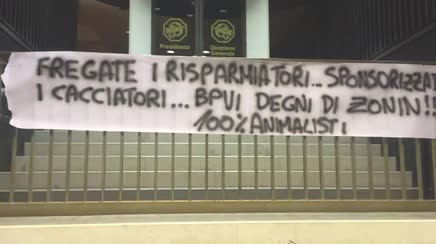 Presidenza
Direzione
Generale
FREGATE I RISPARMIATORI... SPONSORIZZAT
I CACCIATORI... BPVI DEGNI DI ZONIN!!
100% ANIMALISTI